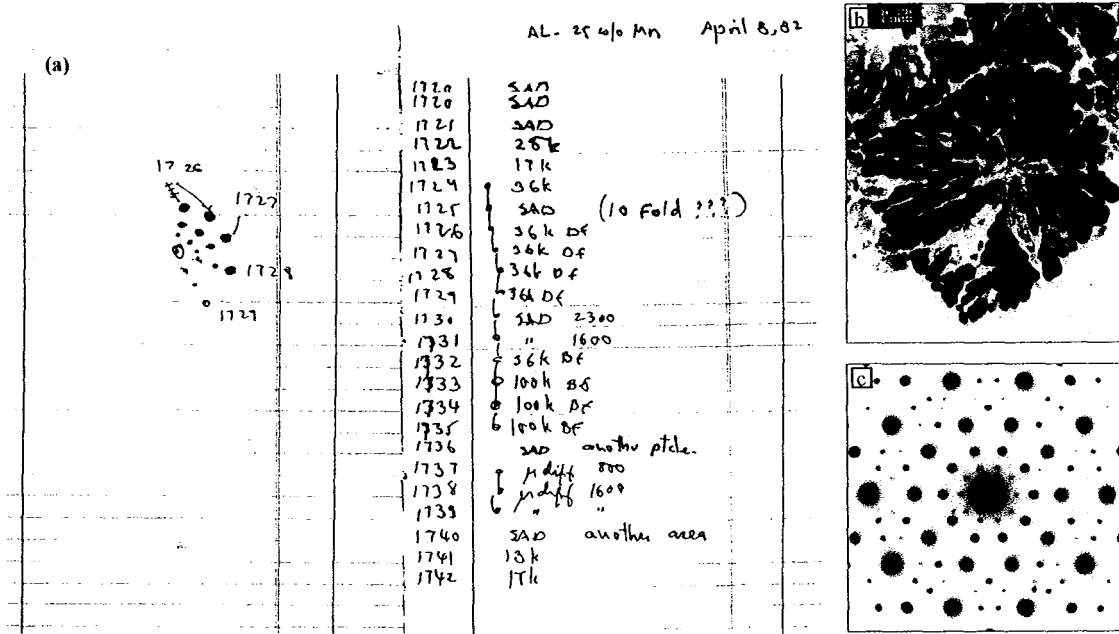 AL- 25 w/o Mn April 8,82
(a)
1720 SAD
1720 SAD
1721 SAD
1722 28k
1723 17k
1724 36k
1725 SAD (10 Fold ???)
1726 36k Df
1727 36k Df
1728 36k Df
1729 36k Df
1730 SAD 2300
1731 " 1600
1732 36k Bf
1733 100k Bf
1734 100k Bf
1735 100k Bf
1736 SAD another ptcle.
1737 μdiff 800
1738 μdiff 1600
1739 " "
1740 SAD another area
1741 13k
1742 17k
1726
1727
1728
1729
b
c